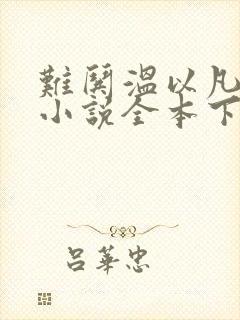 難鬨溫以凡
小說全本下
呂華忠